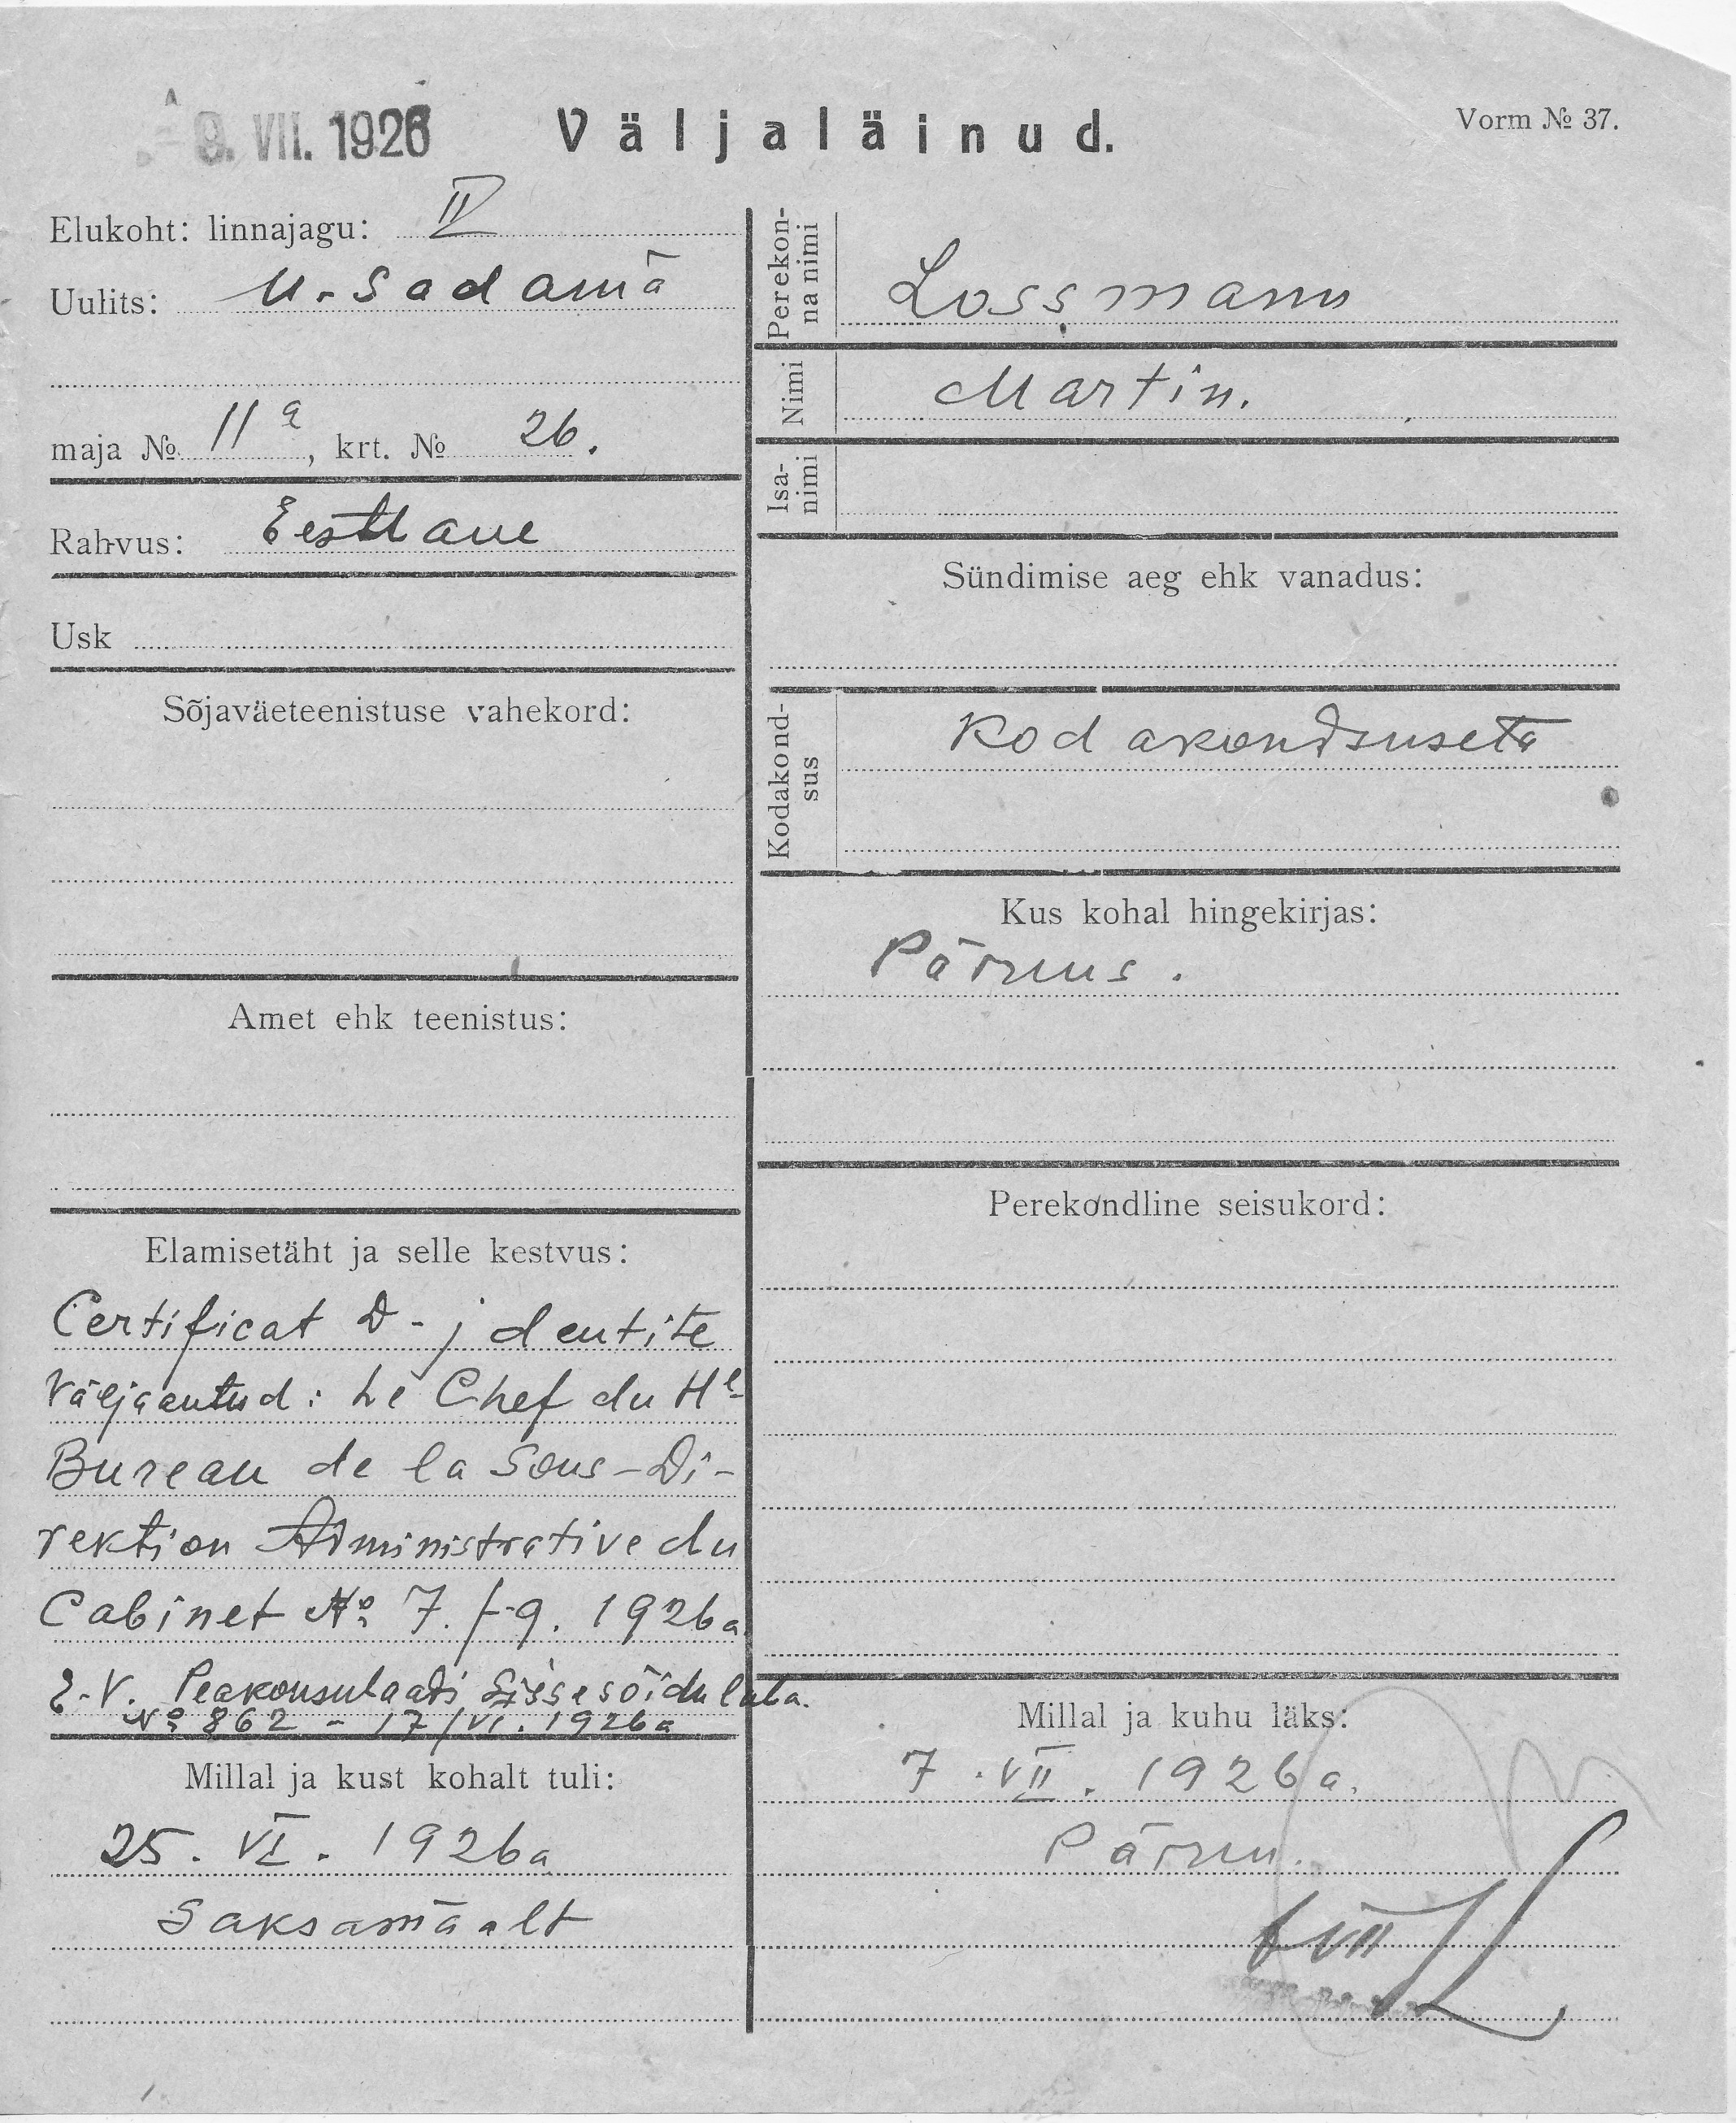 9. VII. 1926
Väljaläinud.
Vorm № 37.
Elukoht: linnajagu: IV
Uulits: U.-Sadama
maja № 11 a, krt. № 26.
Rahvus: Eestlane
Usk
Sõjaväeteenistuse vahekord:
Amet ehk teenistus:
Elamisetäht ja selle kestvus:
Certificat D-jdentite
Väljaantud: Le Chef du
Bureau de la Sous-Di-
rektion Administrative du
Cabinet № 7. 1926 a
E.V. Peakonsulaadi Sissesõidu luba.
№ 862 - 17/VI. 1926 a
Millal ja kust kohalt tuli:
25. VI. 1926 a
Saksamaalt
Perekon-
na nimi
Lossmann
Nimi
Martin.
Isa-
nimi
Sündimise aeg ehk vanadus:
Kodakond-
sus
Kodakondsuseta
Kus kohal hingekirjas:
Pärnus.
Perekondline seisukord:
Millal ja kuhu läks:
7. VII. 1926 a.
Pärnu.